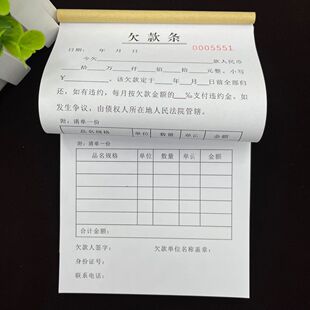 欠款条
日期： 年 月 日 0005551
今欠____________款人民币
____拾____万____仟____佰____拾____元整，小写
￥________。该欠款定于____年____月____日前全部归
还，如有违约，每月按欠款金额的___‰支付违约金。如
发生争议，由债权人所在地人民法院管辖。
附：清单一份
品名规格 单位 数量 单价 金额
附：清单一份
品名规格 单位 数量 单价 金额
合计金额：
欠款人签字： 欠款单位名称盖章：
身份证号：
联系电话：